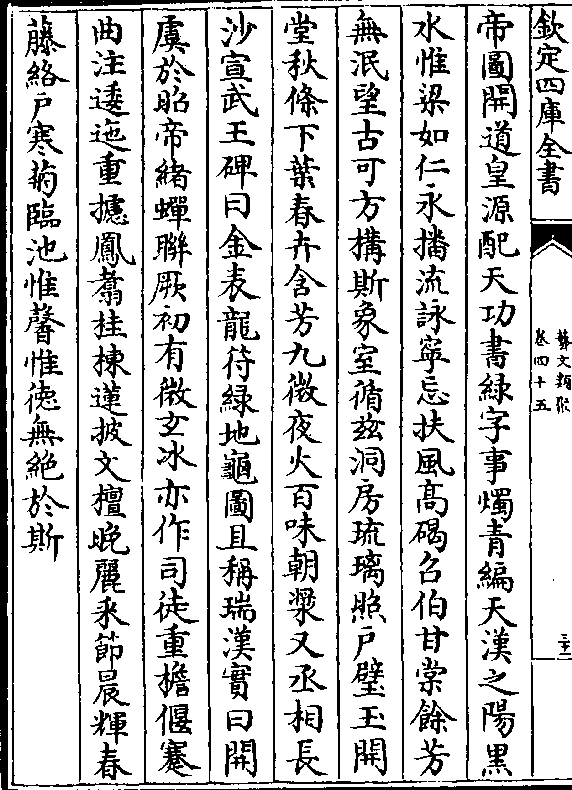 欽定四庫全書
藝文類聚
卷四十五
三十二
帝圖開道皇源配天功書緑字事燭青編天漢之陽黒
水惟梁如仁永播流詠寧忘扶風髙碣召伯甘棠餘芳
無泯望古可方搆斯象室循兹洞房琉璃照户璧玉開
堂秋條下葉春卉含芳九微夜火百味朝漿又丞相長
沙宣武王碑曰金表龍符緑地龜圖且稱瑞漢實曰開
虞於昭帝緒蟬聨厥初有微玄冰亦作司徒重檐偃蹇
曲注逶迤重櫨鳳翥桂棟蓮披文檀晩麗釆節晨輝春
藤絡户寒菊臨池惟馨惟徳無絶於斯